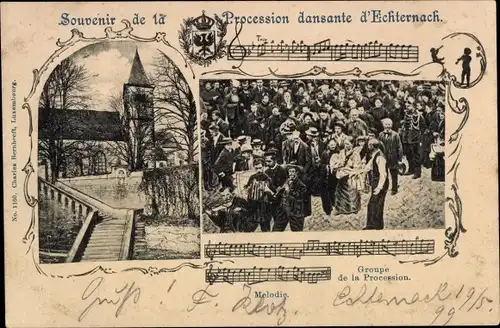 Souvenir de la Procession dansante d'Echternach.
No. 1160. Charles Bernhoeft, Luxembourg.
Groupe
de la Procession.
Melodie.
Gruß! F.
Echternach 19/5
99